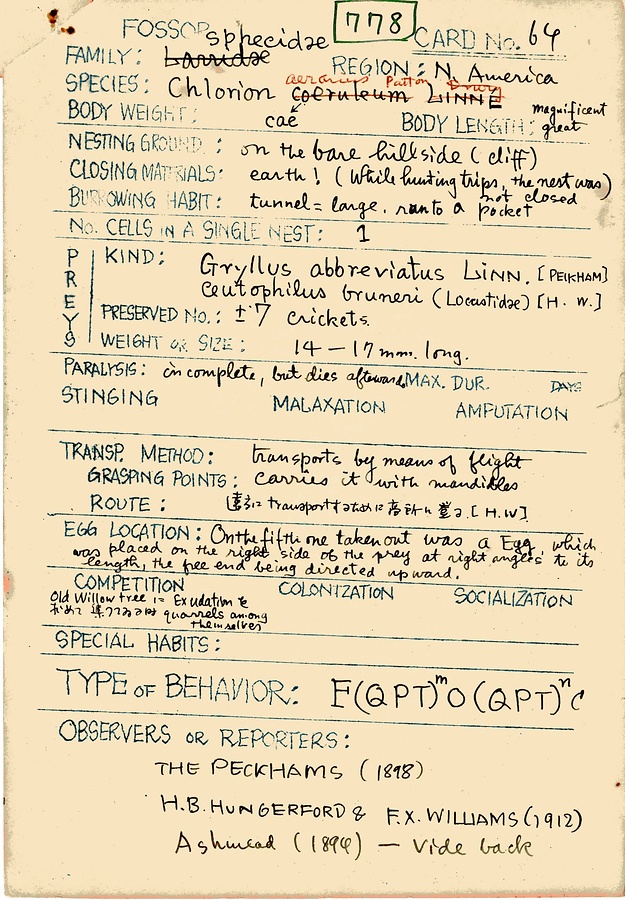 FOSSOR sphecidae 778 CARD No. 64
FAMILY: Larridae REGION: N. America
aerarius Patton Drury
SPECIES: Chlorion coeruleum LINNÉ
cae
BODY WEIGHT: BODY LENGTH: magnificent great
NESTING GROUND: on the bare hillside (cliff)
CLOSING MATERIALS: earth! (While hunting trips, the nest was not closed)
BURROWING HABIT: tunnel = large. ran to a pocket
No. CELLS IN A SINGLE NEST: 1
PREYS
KIND: Gryllus abbreviatus LINN. [PECKHAM]
Ceutophilus bruneri (Locustidae) [H. W.]
PRESERVED No.: ±7 crickets.
WEIGHT OR SIZE: 14 – 17 mm. long.
PARALYSIS: incomplete, but dies afterwards. MAX. DUR. DAYS
STINGING MALAXATION AMPUTATION
TRANSP. METHOD: transports by means of flight
GRASPING POINTS: carries it with mandibles
ROUTE: transportするために高所に登る. [H.W]
EGG LOCATION: On the fifth one taken out was a Egg, which
was placed on the right side of the prey at right angles to its
length, the free end being directed upward.
COMPETITION COLONIZATION SOCIALIZATION
Old Willow tree に Exudation を
quarrels among
themselves
SPECIAL HABITS:
TYPE OF BEHAVIOR: F(QPT)ᵐO(QPT)ⁿC
OBSERVERS OR REPORTERS:
THE PECKHAMS (1898)
H.B. HUNGERFORD & F.X. WILLIAMS (1912)
Ashmead (1894) – Vide back